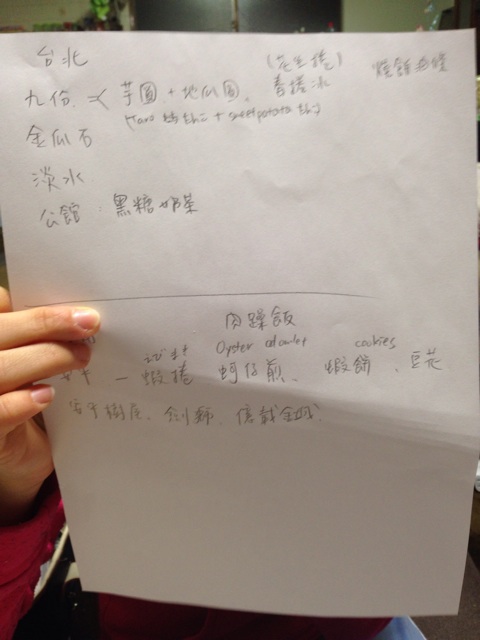 台北
(花生捲)
九份 芋圓 + 地瓜圓, 春捲冰
(Taro + sweetpotato)
金瓜石
淡水
公館 : 黑糖奶茶
肉蹂飯
えびまき Oyster omelet cookies
安平 — 蝦捲 蚵仔煎、蝦餅、豆花
安平樹屋、劍獅、億載金城